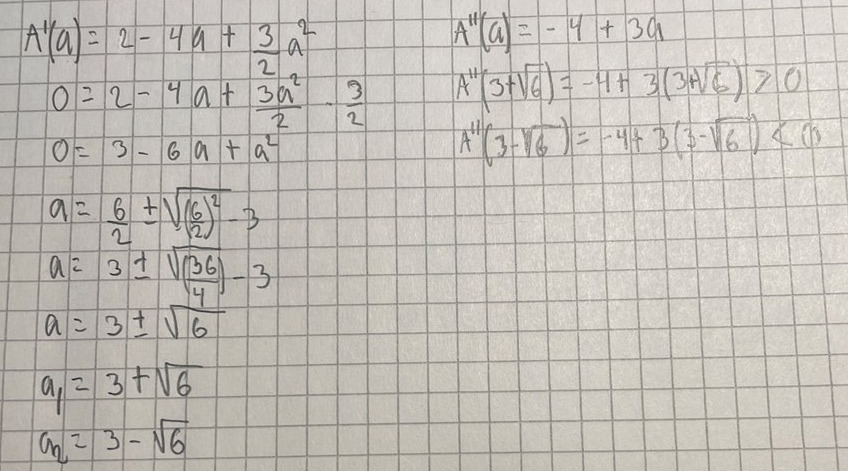 A'(a) = 2 - 4a + 3/2 a²
0 = 2 - 4a + 3a²/2 · 3/2
0 = 3 - 6a + a²
a = 6/2 ± √(6/2)² - 3
a = 3 ± √(36/4) - 3
a = 3 ± √6
a₁ = 3 + √6
a₂ = 3 - √6
A''(a) = -4 + 3a
A''(3+√6) = -4 + 3(3+√6) > 0
A''(3-√6) = -4 + 3(3-√6) < 0